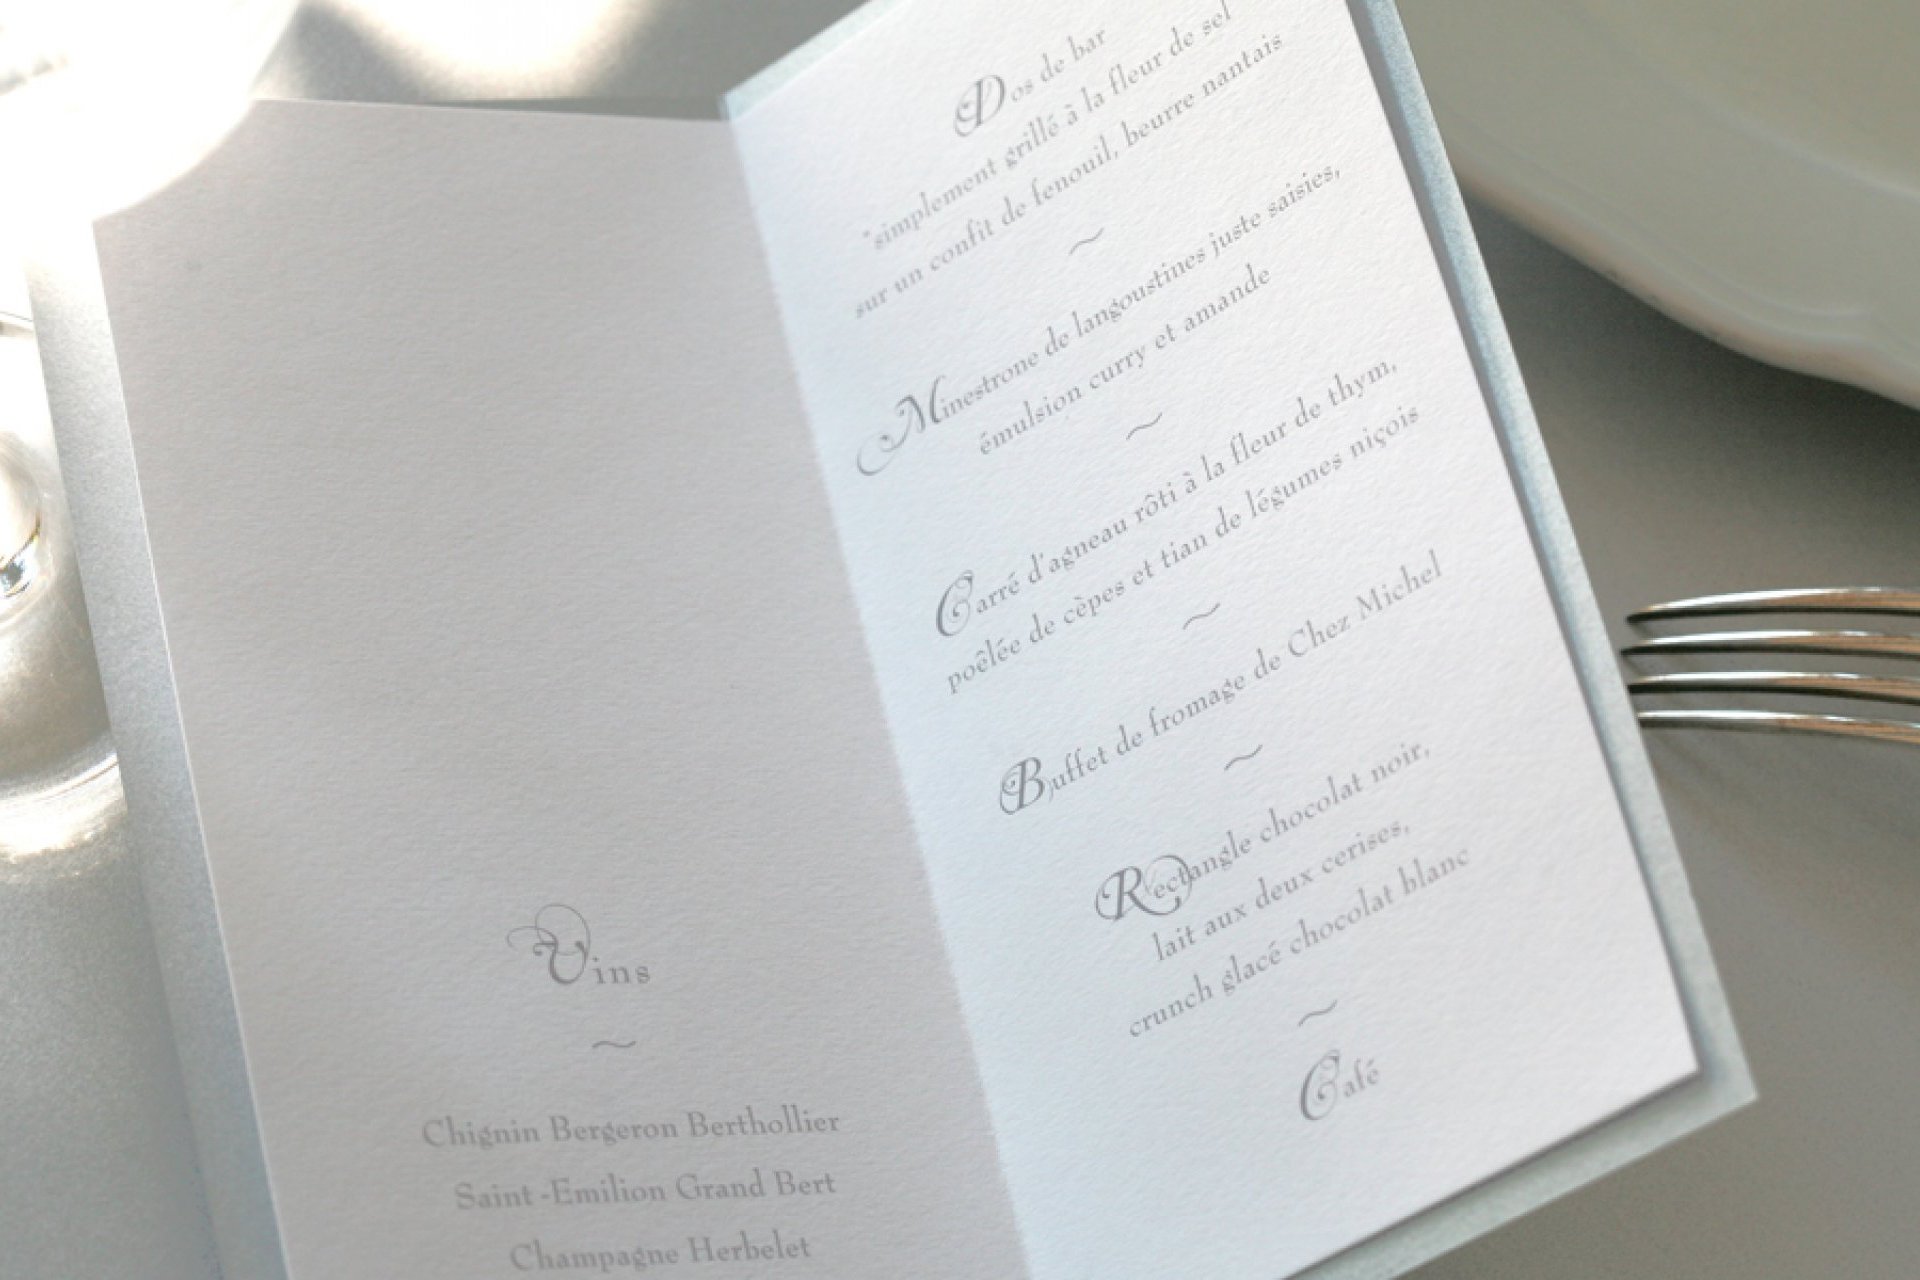 Vins
~
Chignin Bergeron Berthollier
Saint -Emilion Grand Bert
Champagne Herbelet
Dos de bar
"simplement grillé à la fleur de sel
sur un confit de fenouil, beurre nantais
~
Minestrone de langoustines juste saisies,
émulsion curry et amande
~
Carré d'agneau rôti à la fleur de thym,
poêlée de cèpes et tian de légumes niçois
~
Buffet de fromage de Chez Michel
~
Rectangle chocolat noir,
lait aux deux cerises,
crunch glacé chocolat blanc
~
Café